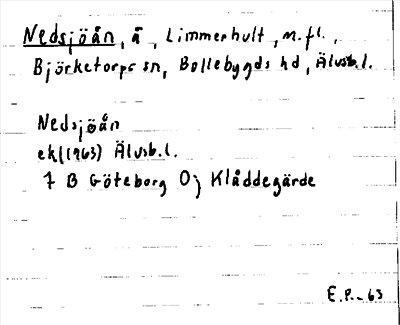 Nedsjöån, å, Limmerhult, m.fl.,
Björketorps sn, Bollebygds hd, Älvsb.l.
Nedsjöån
ek/(1963) Älvsb.l.
7 B Göteborg Oj Klåddegärde
E.P.-63